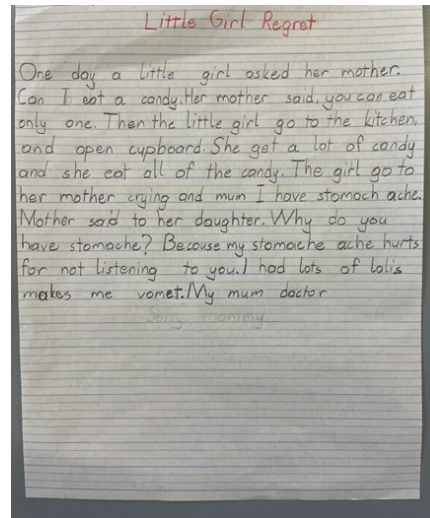 Little Girl Regret
One day a little girl asked her mother.
Can I eat a candy.Her mother said, you can eat
only one. Then the little girl go to the kitchen,
and open cupboard. She get a lot of candy
and she eat all of the candy. The girl go to
her mother crying and mum I have stomach ache.
Mother said to her daughter. Why do you
have stomache? Because my stomaiche ache hurts
for not listening to you.I had lots of lolis
makes me vomet.My mum doctor
Sorry mommy